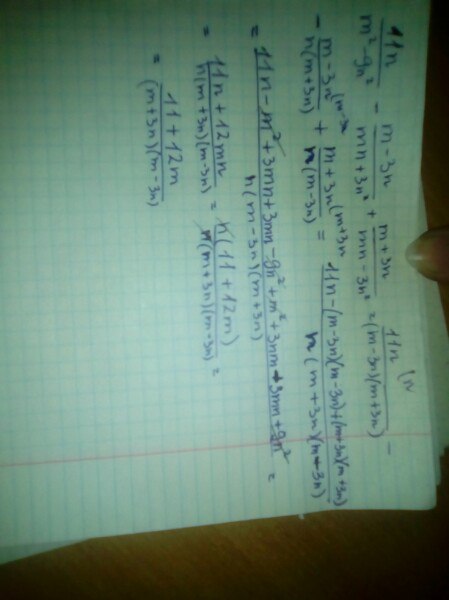 11n/(m²-9n²) - (m-3n)/(mn+3n²) + (m+3n)/(mn-3n²) = 11n (n/((m-3n)(m+3n)) -
- (m-3n (m-3n)/(n(m+3n)) + (m+3n (m+3n)/(n(m-3n)) = (11n-(m-3n)(m-3n)+(m+3n)(m+3n))/(n(m+3n)(m-3n))
= (11n-m²+3mn+3mn-9n²+m²+3nm+3mn+9n²)/(n(m-3n)(m+3n)) =
= (11n+12mn)/(n(m+3n)(m-3n)) = n(11+12m)/(n(m+3n)(m-3n)) =
= (11+12m)/((m+3n)(m-3n))